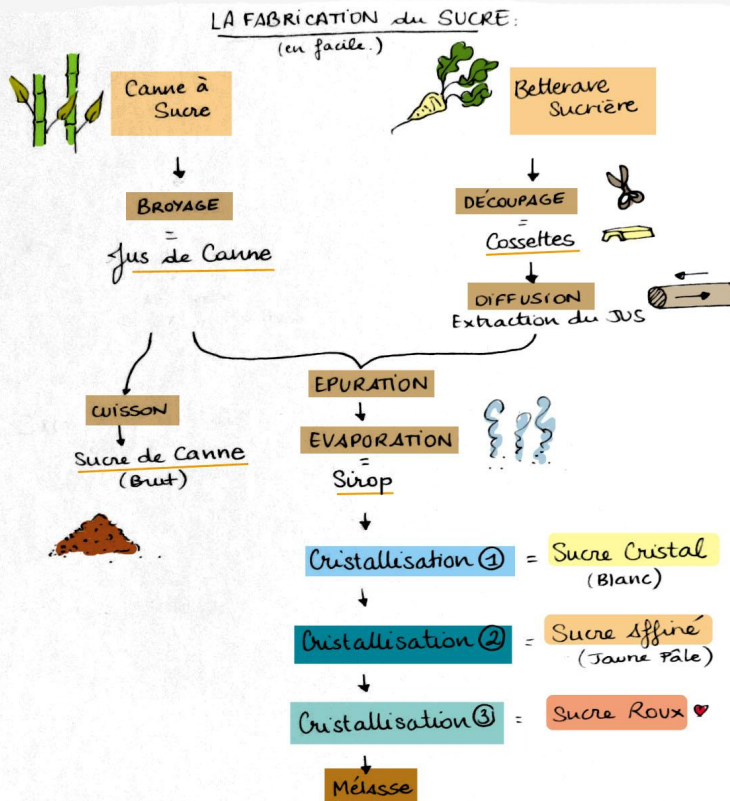 LA FABRICATION du SUCRE:
(en facile.)
Canne à
Sucre
Betterave
Sucrière
BROYAGE
=
Jus de Canne
DÉCOUPAGE
=
Cossettes
DIFFUSION
Extraction du JUS
CUISSON
Sucre de Canne
(Brut)
EPURATION
EVAPORATION
=
Sirop
Cristallisation ① = Sucre Cristal
(Blanc)
Cristallisation ② = Sucre Affiné
(Jaune Pâle)
Cristallisation ③ = Sucre Roux
Mélasse